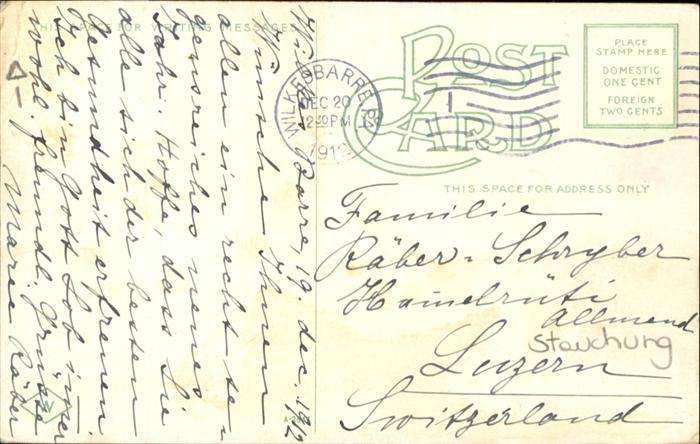 THIS SPACE FOR WRITING MESSAGES
POST
CARD
PLACE
STAMP HERE
DOMESTIC
ONE CENT
FOREIGN
TWO CENTS
WILKES-BARRE, PA.
DEC 20
1912
THIS SPACE FOR ADDRESS ONLY
Wilkes Barre, 19. dec. 1912
Wünsche Ihnen
allen ein recht se-
gensreiches neues
Jahr. Hoffe, dass Sie
alle sich der besten
Gesundheit erfreuen
Ich bin Gott Lob immer
wohl. freundl. Grüsse
Marie Räber
Familie
Räber-Schryber
Hamelrüti
Allmend
Stauchung
Luzern
Switzerland